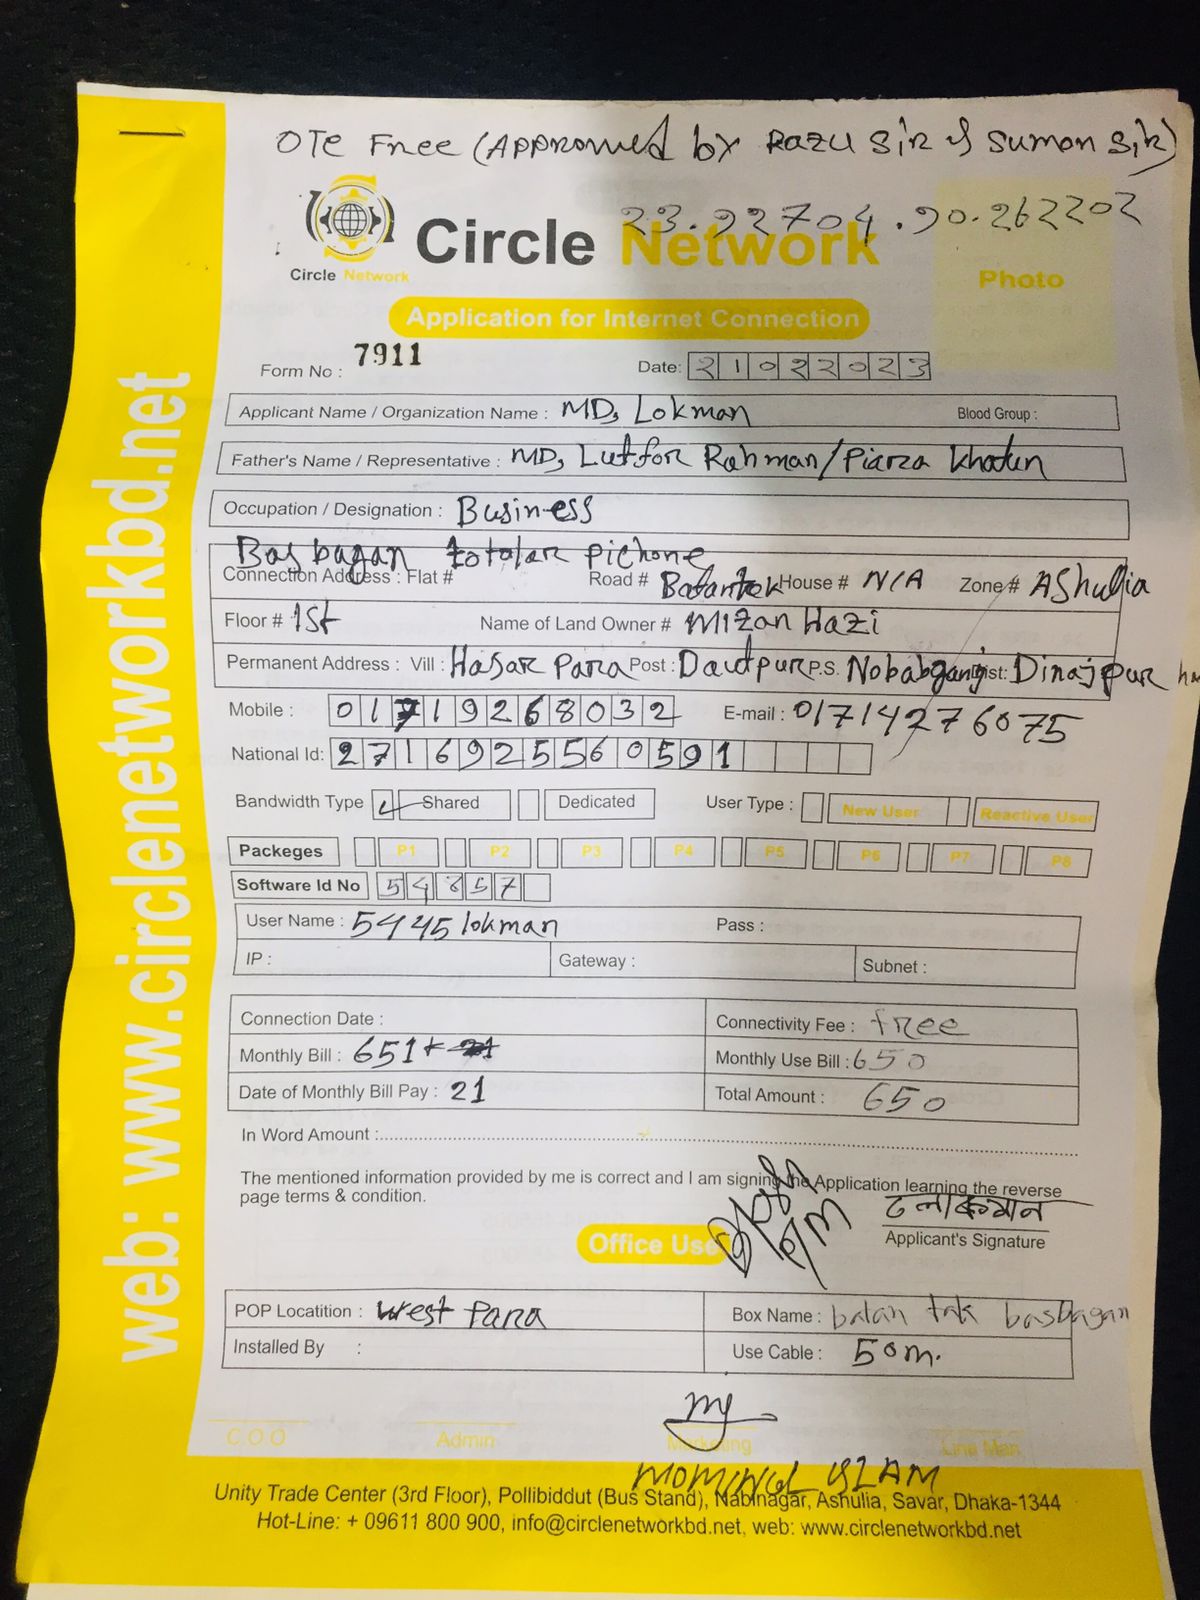 OTC Free (Approved by Razu Sir & Sumon Sir)
23.92704.90.262202
Circle Network
Circle Network
Photo
Application for Internet Connection
Form No : 7911
Date: 21022023
Applicant Name / Organization Name : MD, Lokman Blood Group :
Father's Name / Representative : MD, Lutfor Rahman/Piara Khatun
Occupation / Designation : Business
Basbagan totolar pichone
Connection Address : Flat # Road # Batantek House # N/A Zone # Ashulia
Floor # 1st Name of Land Owner # Mizan Hazi
Permanent Address : Vill : Hasar Para Post : Daudpur P.S. Nobabganj Dist: Dinajpur
Mobile : 01719268032 E-mail : 01714276075
National Id: 2716925560591
Bandwidth Type Shared Dedicated User Type : New User Reactive User
Packeges P1 P2 P3 P4 P5 P6 P7 P8
Software Id No 54857
User Name : 5445lokman Pass :
IP : Gateway : Subnet :
Connection Date : Connectivity Fee : free
Monthly Bill : 651 Monthly Use Bill : 650
Date of Monthly Bill Pay : 21 Total Amount : 650
In Word Amount :
The mentioned information provided by me is correct and I am signing the Application learning the reverse
page terms & condition.
লোকমান
Applicant's Signature
Office Use
POP Locatition : West Para Box Name : batan tak basbagan
Installed By : Use Cable : 50m.
C.O.O Admin Marketing Line Man
MOMINUL ISLAM
Unity Trade Center (3rd Floor), Pollibiddut (Bus Stand), Nabinagar, Ashulia, Savar, Dhaka-1344
Hot-Line: + 09611 800 900, info@circlenetworkbd.net, web: www.circlenetworkbd.net
web: www.circlenetworkbd.net